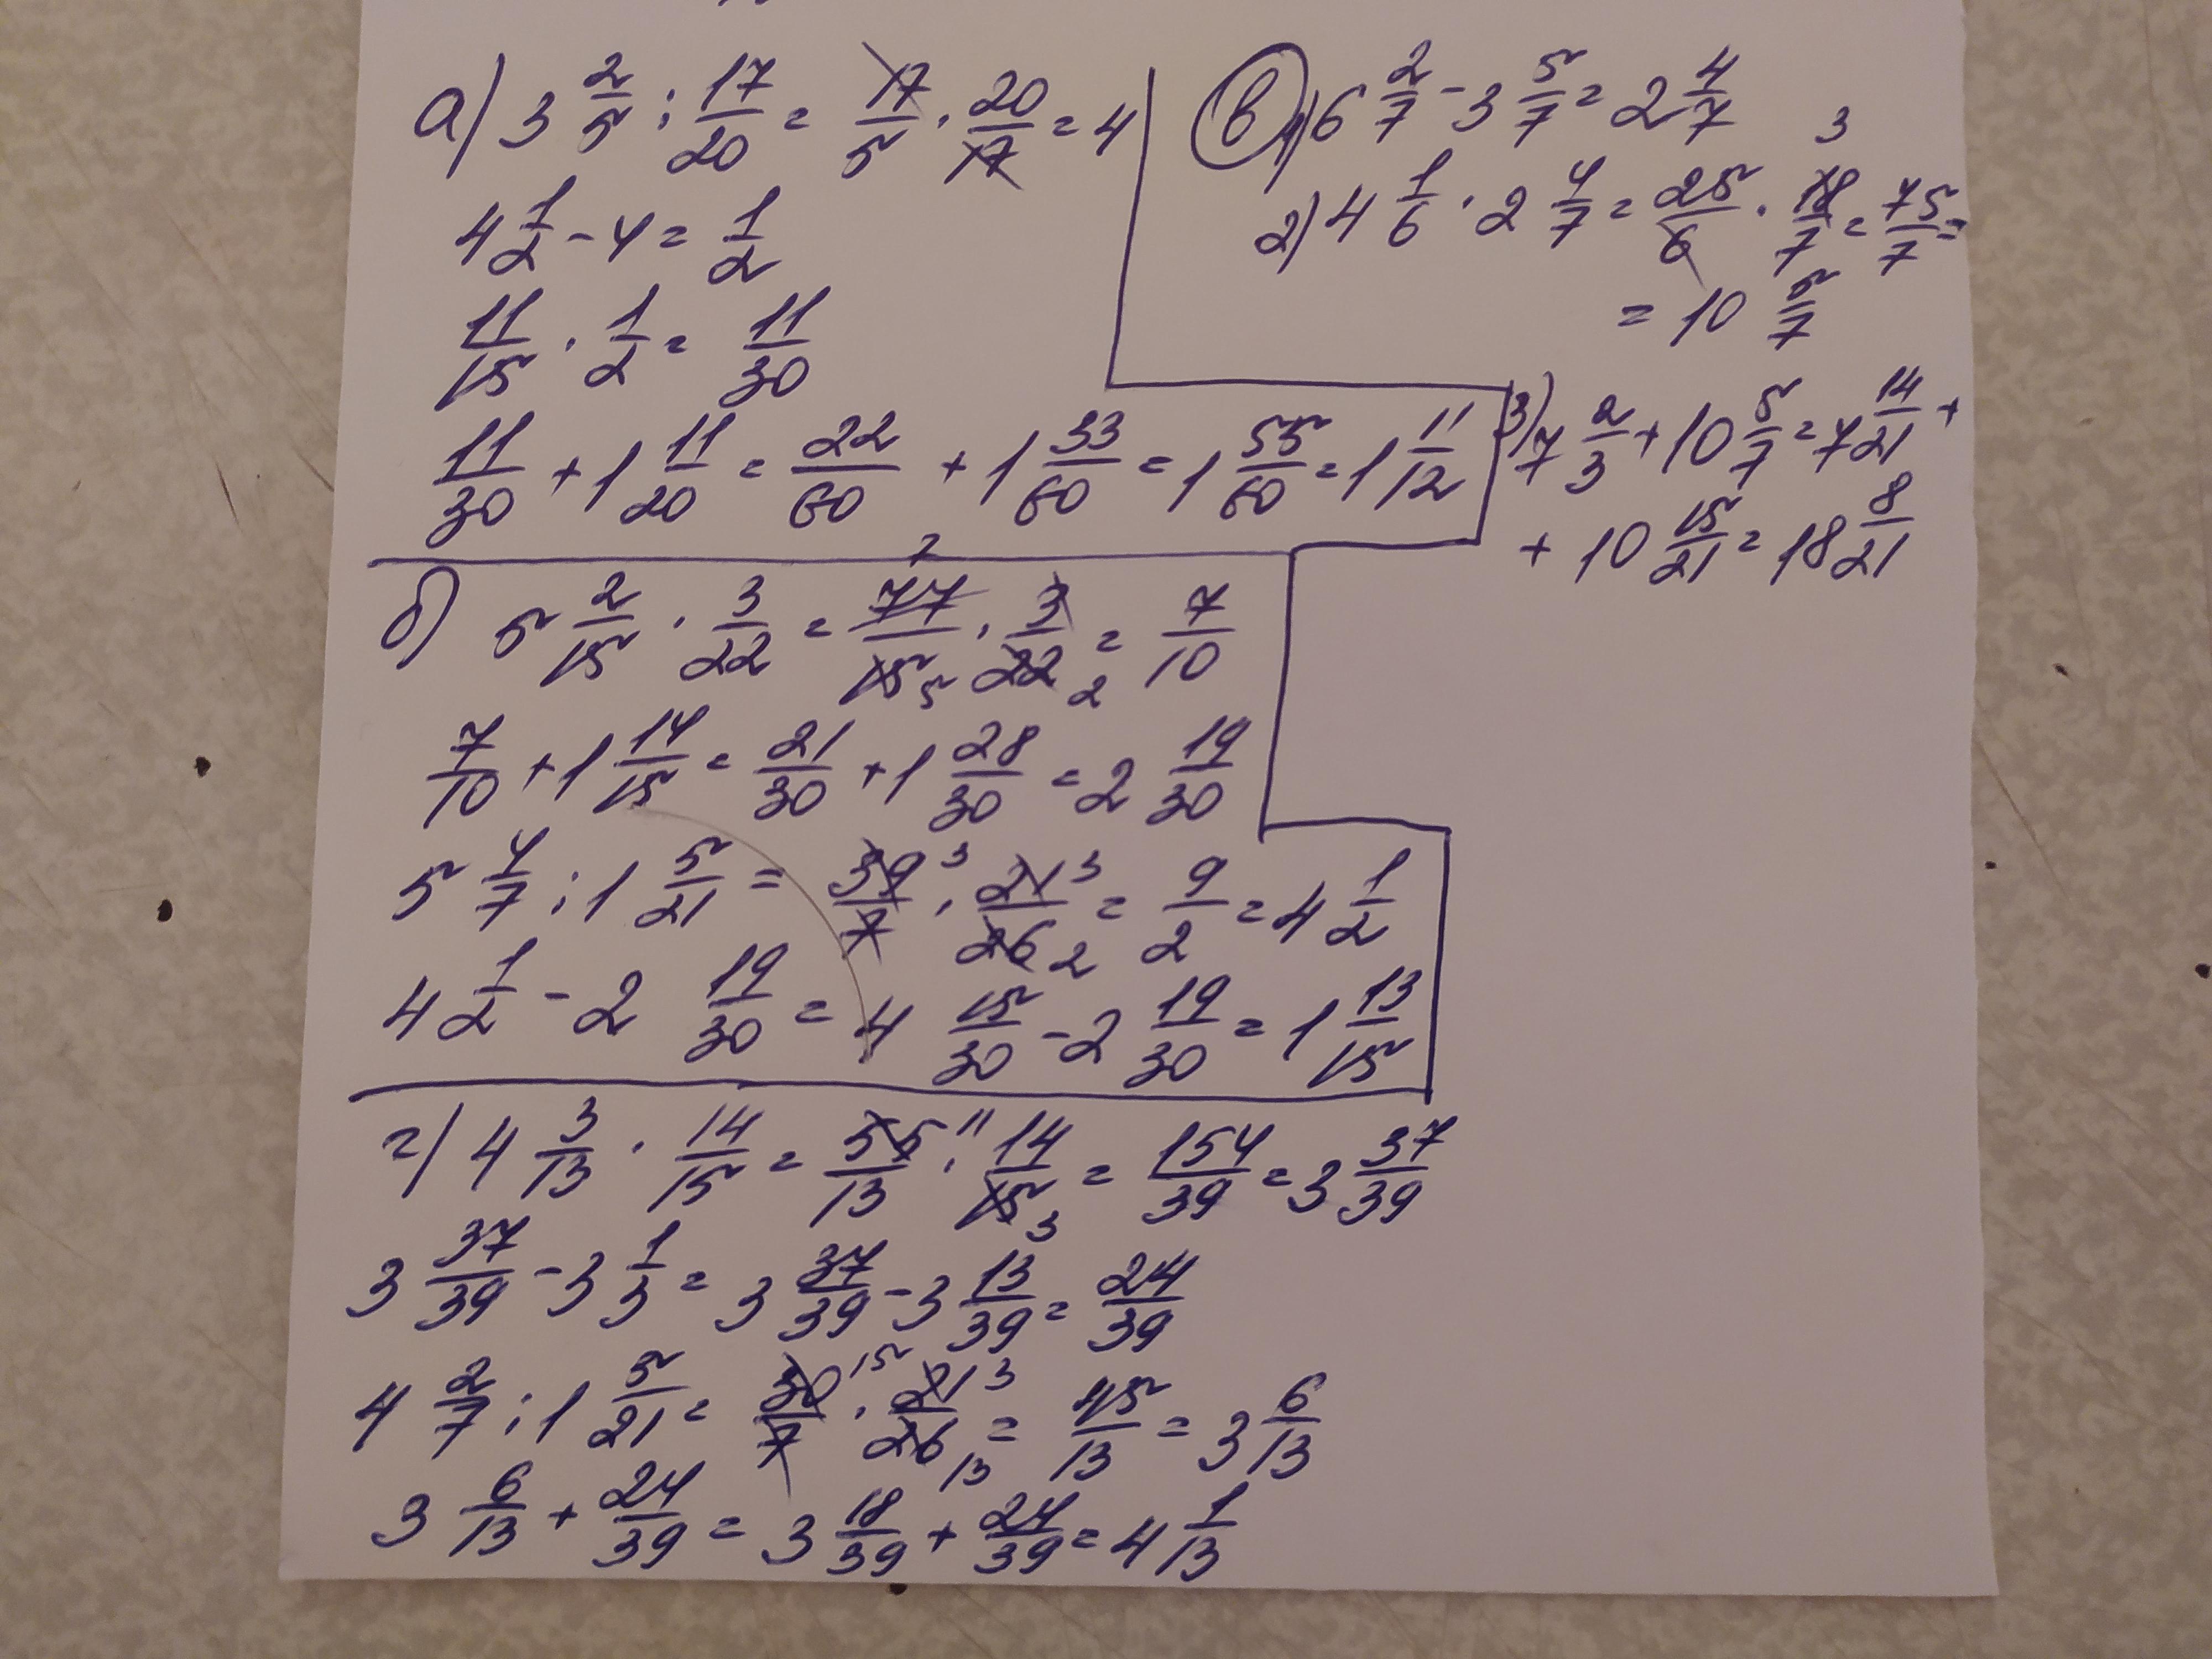 а) 3 2/5 : 17/20 = 17/5 · 20/17 = 4
4 1/2 - 4 = 1/2
11/15 · 1/2 = 11/30
11/30 + 1 11/20 = 22/60 + 1 33/60 = 1 55/60 = 1 11/12
в) 1) 6 2/7 - 3 5/7 = 2 4/7
2) 4 1/6 · 2 4/7 = 25/6 · 18/7 3 = 75/7 =
= 10 5/7
3) 7 2/3 + 10 5/7 = 7 14/21 +
+ 10 15/21 = 18 8/21
б) 5 2/15 · 3/22 = 77 7/15 5 · 3/22 2 = 7/10
7/10 + 1 14/15 = 21/30 + 1 28/30 = 2 19/30
5 4/7 : 1 5/21 = 39 3/7 · 21 3/26 2 = 9/2 = 4 1/2
4 1/2 - 2 19/30 = 4 15/30 - 2 19/30 = 1 13/15
г) 4 3/13 · 14/15 = 55 11/13 · 14/15 3 = 154/39 = 3 37/39
3 37/39 - 3 1/3 = 3 37/39 - 3 13/39 = 24/39
4 2/7 : 1 5/21 = 30 15/7 · 21 3/26 13 = 45/13 = 3 6/13
3 6/13 + 24/39 = 3 18/39 + 24/39 = 4 1/13